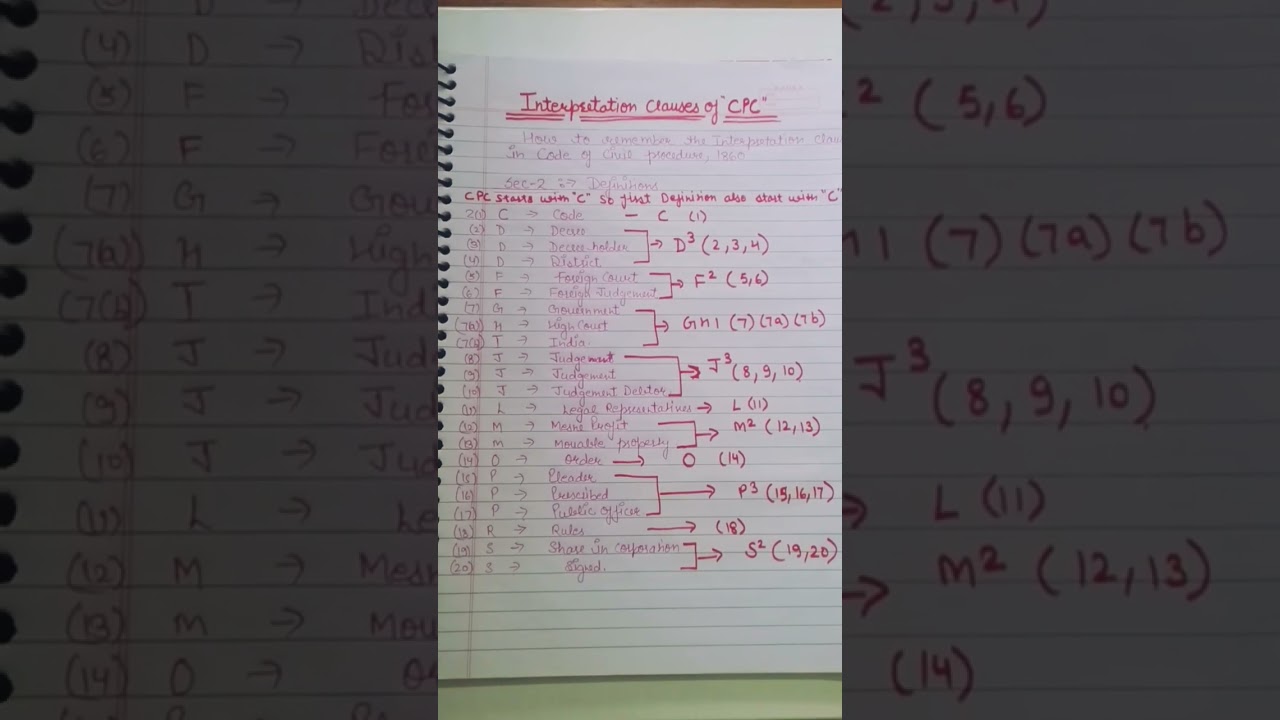 Interpretation Clauses of "CPC"
How to remember the Interpretation Clau
in Code of Civil procedure, 1860
Sec-2 => Definitions
CPC starts with "C" so first Definition also start with "C"
2(1) C → Code — C (1)
(2) D → Decree
(3) D → Decree-holder → D³ (2,3,4)
(4) D → District
(5) F → Foreign Court → F² (5,6)
(6) F → Foreign Judgement
(7) G → Government
(7a) H → High Court → GHI (7) (7a) (7b)
(7b) I → India.
(8) J → Judgement
(9) J → Judgement → J³ (8, 9, 10)
(10) J → Judgement Debtor
(11) L → Legal Representatives → L (11)
(12) M → Mesne Profit → M² (12,13)
(13) M → Movable property
(14) O → Order → O (14)
(15) P → Pleader
(16) P → Prescribed → P³ (15,16,17)
(17) P → Public Officer
(18) R → Rules → (18)
(19) S → Share in corporation → S² (19,20)
(20) S → Signed.